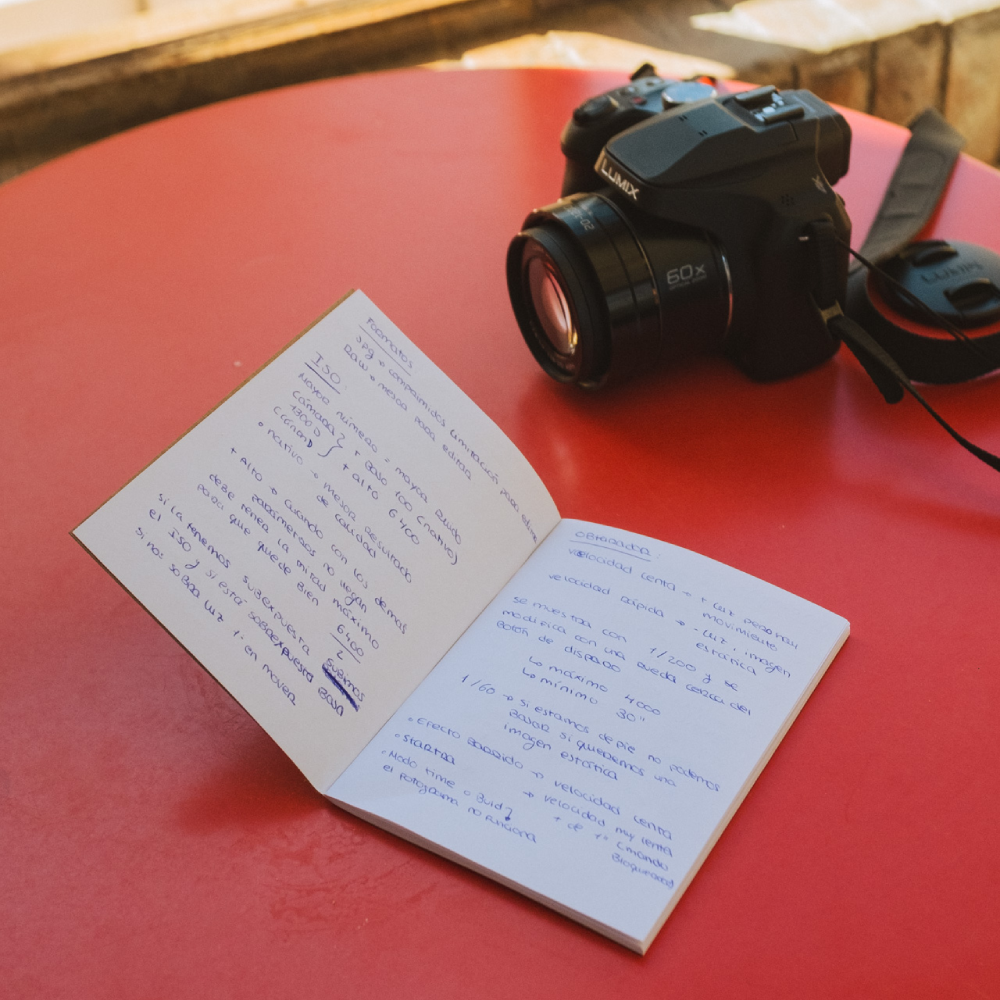 LUMIX
60x
LUMIX
Formatos
JPG → comprimidos limitación para editar
RAW → mejor para editar
ISO:
Mayor número = mayor ruido
Cámara } + bajo 100 (nativo)
1300D } + alto 6400
(Canon)
• nativo → mejor resultado
de calidad
+ Alto → cuando con los demas
parámetros no llegan
debe tener la mitad máximo
para que quede bien 6400
2
si la tenemos subexpuesta subimos
el ISO y si está sobreexpuesta baja
si no: sobra luz
en mover
OBTURADOR:
velocidad lenta → + luz, personas
movimiento
velocidad rápida → - luz, imagen
estática
se muestra con 1/200 y se
modifica con una rueda cerca del
botón de disparo
↳ máximo 4000
↳ mínimo 30"
1/60 → si estamos de pie no podemos
bajar si queremos una
imagen estática
• Efecto barrido → velocidad lenta
• startrail → velocidad muy lenta
+ de 1" (mando
bloqueado)
• Modo time o Bulb?
el fotograma no funciona